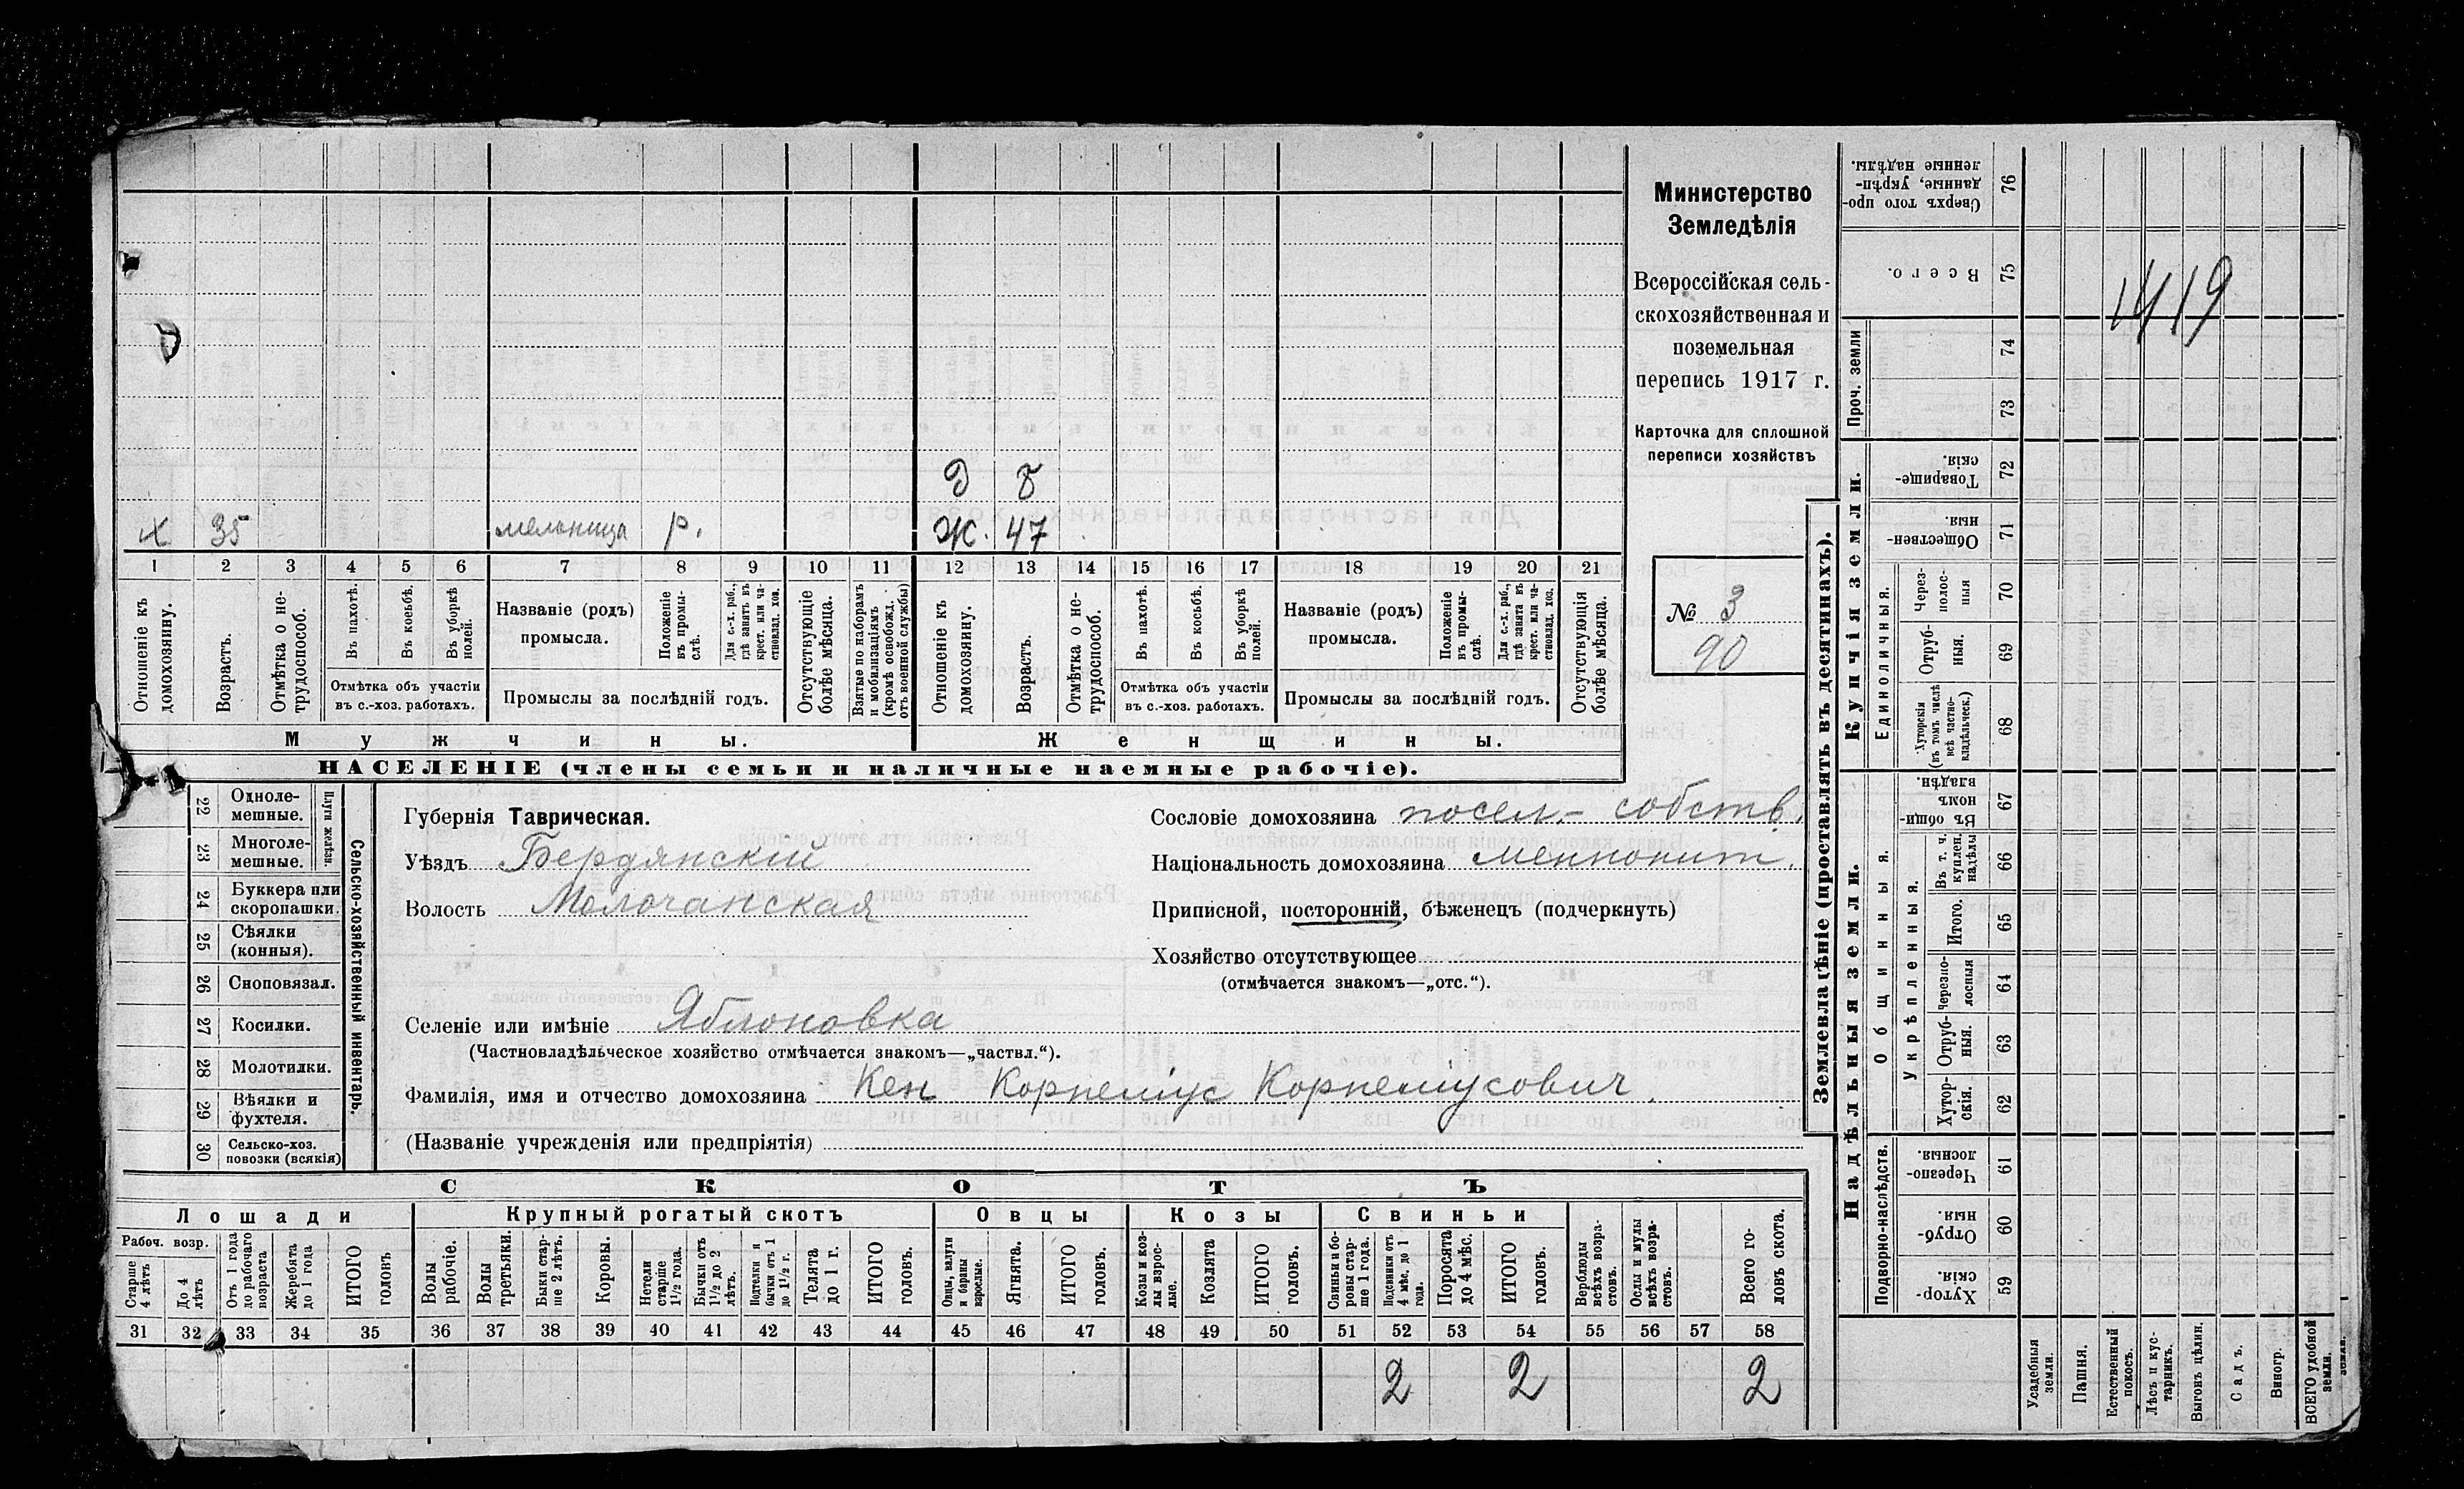 Министерство
Земледѣлія
Всероссійская сель-
скохозяйственная и
поземельная
перепись 1917 г.
Карточка для сплошной
переписи хозяйствъ
№ 3
90
Э 8
х 35 мельница р. Ж. 47
1 2 3 4 5 6 7 8 9 10 11 12 13 14 15 16 17 18 19 20 21
Отношеніе къ домохозяину.
Возрастъ.
Отмѣтка о не-трудоспособ.
Въ пахотѣ.
Въ косьбѣ.
Въ уборкѣ полей.
Отмѣтка объ участіи
въ с.-хоз. работахъ.
Названіе (родъ)
промысла.
Положеніе въ промы-слѣ.
Для с.-х. раб., гдѣ занятъ въ крест. или ча-стновлад. хоз.
Промыслы за послѣдній годъ.
Отсутствующіе болѣе мѣсяца.
Взятые по наборамъ и мобилизаціямъ (кромѣ освобожд. отъ военной службы)
Отношеніе къ домохозяину.
Возрастъ.
Отмѣтка о не-трудоспособ.
Въ пахотѣ.
Въ косьбѣ.
Въ уборкѣ полей.
Отмѣтка объ участіи
въ с.-хоз. работахъ.
Названіе (родъ)
промысла.
Положеніе въ промы-слѣ.
Для с.-х. раб., гдѣ занята въ крест. или ча-стновлад. хоз.
Промыслы за послѣдній годъ.
Отсутствующія болѣе мѣсяца.
Мужчины.
Женщины.
НАСЕЛЕНІЕ (члены семьи и наличные наемные рабочіе).
Сельско-хозяйственный инвентарь.
Плуги желѣзн.
22 Одноле-мешные.
23 Многоле-мешные.
24 Буккера или скоропашки.
25 Сѣялки (конныя).
26 Сноповязал.
27 Косилки.
28 Молотилки.
29 Вѣялки и фухтеля.
30 Сельско-хоз. повозки (всякія)
Губернія Таврическая.
Уѣздъ Бердянскій
Волость Молочанская
Селеніе или имѣніе Яблоновка
(Частновладѣльческое хозяйство отмѣчается знакомъ—„частвл.“).
Фамилія, имя и отчество домохозяина Кен Корнеліус Корнеліусович.
(Названіе учрежденія или предпріятія)
Сословіе домохозяина посел.- собств.
Національность домохозяина меннонит.
Приписной, посторонній, бѣженецъ (подчеркнуть)
Хозяйство отсутствующее
(отмѣчается знакомъ—„отс.“).
СКОТЪ
Лошади
Крупный рогатый скотъ
Овцы
Козы
Свиньи
Рабоч. возр.
Старше 4 лѣтъ
До 4 лѣтъ
Отъ 1 года до рабочаго возраста
Жеребята до 1 года
ИТОГО головъ
Волы рабочіе.
Волы третьяки.
Быки стар-ше 2 лѣтъ.
Коровы.
Нетели старше 1½ года.
Бычки отъ 1½ до 2 лѣтъ.
Подтелки и бычки отъ 1 до 1½ г.
Телята до 1 г.
ИТОГО головъ.
Овцы, валухи и бараны взрослые.
Ягнята.
ИТОГО головъ.
Козы и коз-лы взрос-лые.
Козлята
ИТОГО головъ.
Свиньи и бо-ровы стар-ше 1 года.
Подсвинки отъ 4 мѣс. до 1 года.
Поросята до 4 мѣс.
ИТОГО головъ.
Верблюды всѣхъ возра-стовъ.
Ослы и мулы всѣхъ возра-стовъ.
Всего го-ловъ скота.
31 32 33 34 35 36 37 38 39 40 41 42 43 44 45 46 47 48 49 50 51 52 53 54 55 56 57 58
2 2 2
Землевладѣніе (проставлять въ десятинахъ).
Купчія земли.
Надѣльныя земли.
76 Сверхъ того про-данные, укрѣп-ленные надѣлы.
75 Всего.
Проч. земли
74
73
72 Товарище-скія.
71 Обществен-ныя.
Единоличныя.
70 Через-полос-ныя
69 Отруб-ныя.
68 Хуторскія (въ томъ числѣ всѣ частно-владѣльческ.)
Общинныя.
67 Въ общи-номъ владѣн.
Укрѣпленныя.
66 Въ т. ч. куплен. надѣлы
65 Итого.
64 Черезпо-лосныя
63 Отруб-ныя.
62 Хутор-скія.
Подворно-наслѣдств.
61 Черезпо-лосныя.
60 Отруб-ныя.
59 Хутор-скія.
Усадебныя земли.
Пашня.
Естественный покосъ.
Лѣсъ и кус-тарникъ.
Выгонъ цѣлин.
Садъ.
Виногр.
ВСЕГО удобной земли.
1419